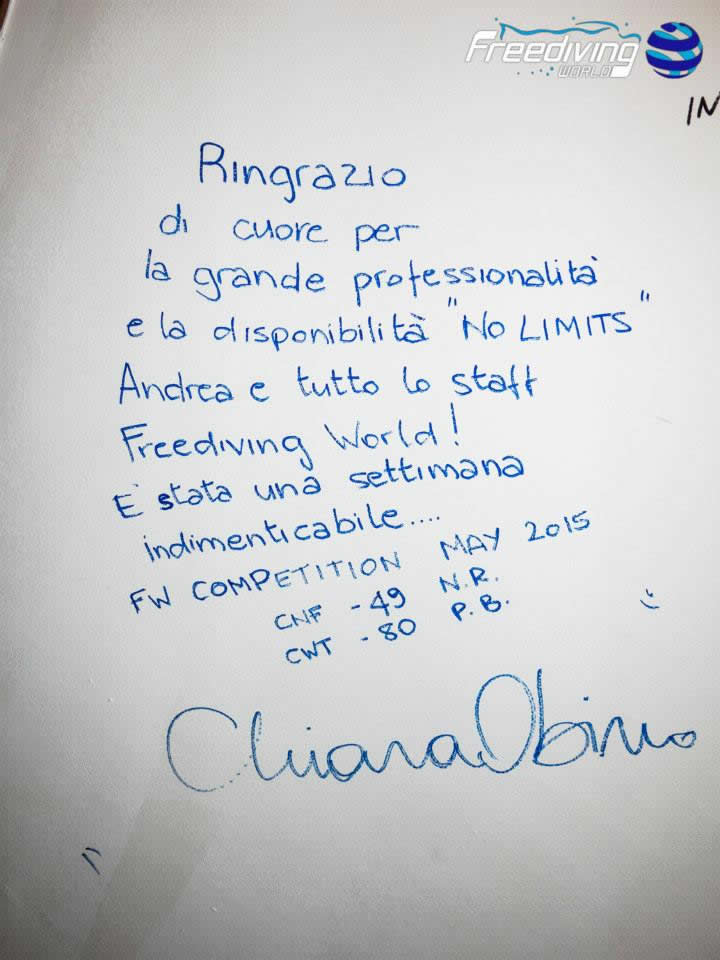 Freediving
WORLD
IN
Ringrazio
di cuore per
la grande professionalità
e la disponibilità "NO LIMITS"
Andrea e tutto lo staff
Freediving World!
E' stata una settimana
indimenticabile....
FW COMPETITION MAY 2015
CNF -49 N.R.
CWT -80 P.B.
:)
Chiara Obino